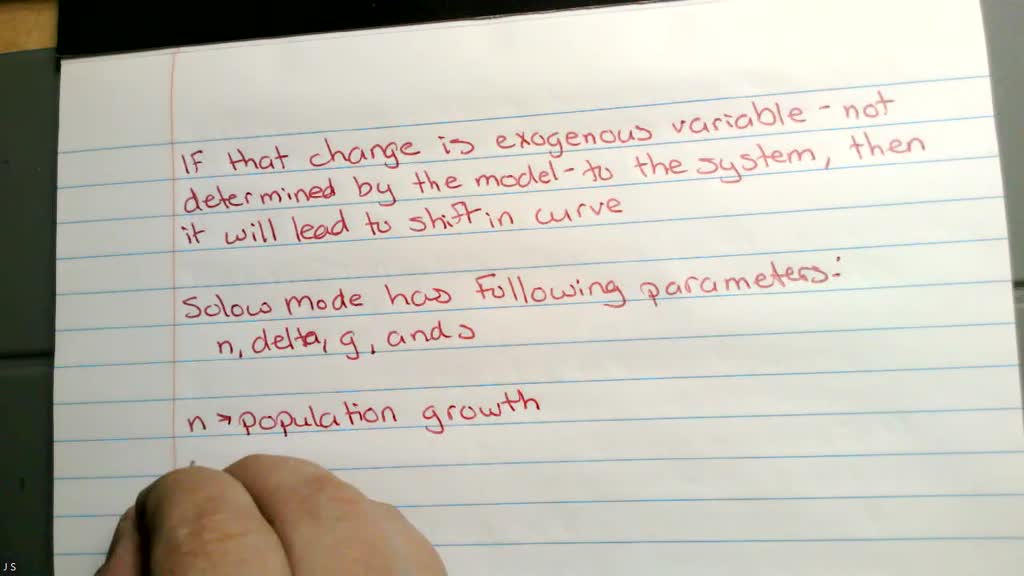 IF that change is exogenous variable - not
determined by the model - to the system, then
it will lead to shift in curve
Solow mode has following parameters:
n, delta, g, and s
n → population growth
J S